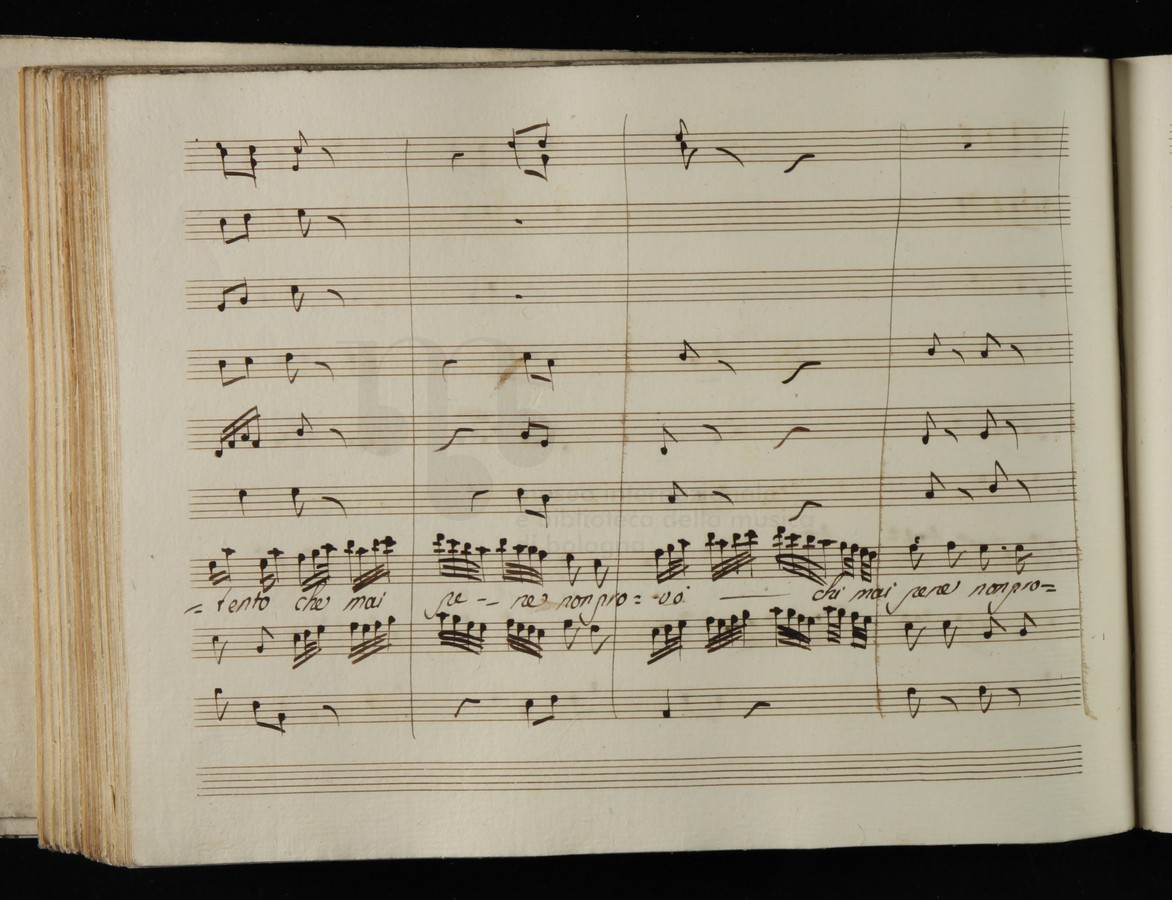 museo internazionale
e biblioteca della musica
di bologna
= tento che mai pe - - ne non pro = vò chi mai pene non pro =